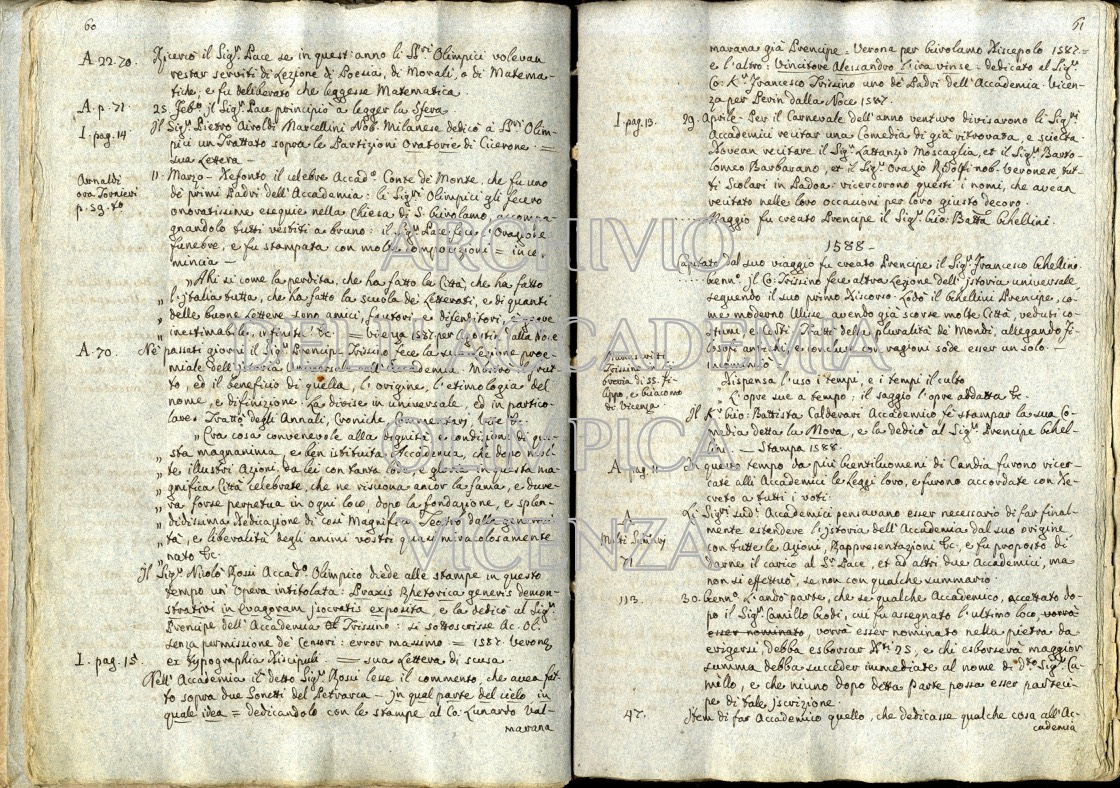 60
A. 22. 70. Ricercò il Sig.r Pace se in quest'anno li SS.ri Olimpici volevan
restar serviti di Lezione di Poesia, di Morali, o di Matema-
tiche; e fu deliberato che leggesse Matematica.
A. p. 71. 25 Feb.o il Sig.r Pace principiò a legger la Sfera.
I. pag. 14 Il Sig.r Pietro Airoldi Marcellini Nob. Milanese dedicò a' SS.ri Olim-
pici un Trattato sopra le Partizioni Oratorie di Cicerone =
sua Lettera —
Arnaldi
ora Tornieri
p. 59. to
11. Marzo - Defonto il celebre Accad.o Conte de Monte, che fu uno
de' primi Padri dell'Accademia: li Sig.ri Olimpici gli fecero
onoratissime esequie nella Chiesa di S. Girolamo, accompa-
gnandolo tutti vestiti a bruno: il Sig.r Pace fece l'Orazione
funebre, e fu stampata con molte composizioni = inco-
mincia —
„ Ahi si come la perdita, che ha fatto la Città, che ha fatto
„ l'Italia tutta, che ha fatto la scuola de' Letterati, e di quanti
„ delle buone Lettere sono amici, fautori, e difenditori,
„ inestimabile, infinita &c. = Vicenza 1587 per Agostin dalla Noce
A. 70. Ne' passati giorni il Sig.r Prencipe Trissino fece la sua Lezione proe-
miale dell'Istoria Universale all'Accademia. Mostrò il frut-
to, ed il beneficio di quella, l'origine, l'etimologia del
nome, e difinizione. La divise in universale, ed in partico-
lare. Trattò degli Annali, Croniche, Commentarj,
„ Era cosa convenevole alla dignità, e condizioni di que-
„ sta magnanima, e ben istituita Accademia, che dopo mol-
„ te illustri Azioni, da lei con tanta lode, e gloria in questa ma-
„ gnifica Città celebrate, che ne risuona ancor la fama, e dure-
„ rà forse perpetua in ogni loco, dopo la fondazione, e splen-
„ didissima dedicazione di così Magnifico Teatro dalla generosi-
„ tà, e liberalità degli animi vostri quasi miracolosamente
nato &c.
Il Sig.r Nicolò Rossi Accad.o Olimpico diede alle stampe in questo
tempo un'Opera intitolata: Praxis Rhetorica generis demon-
strativi in Evagoram Isocratis exposita, e la dedicò al Sig.r
Prencipe dell'Accademia Trissino: si sottoscrisse Ac. Ol.
senza permissione de' Censori: error massimo = 1587. Veronę
ex typographia Discipuli = sua Lettera di scusa.
I. pag. 15. Nell'Accademia il detto Sig.r Rossi lesse il commento, che avea fat-
to sopra due Sonetti del Petrarca — In qual parte del cielo, in
quale idea = dedicandolo con le stampe al Co: Lunardo Val-
marana
61
marana già Prencipe = Verona per Girolamo Discepolo 1587 =
e l'altro: Vincitore Alessandro l'ira vinse: dedicato al Sig.r
Co: K.r Francesco Trissino uno de' Padri dell'Accademia. Vicen-
za per Perin dalla Noce 1587.
I. pag. 13. 29. Aprile - Per il Carnevale dell'anno venturo divisarono li Sig.ri
Accademici recitar una Comedia di già ritrovata, e scielta.
Dovean recitare il Sig.r Lattanzio Moscaglia, et il Sig.r Barto-
lomeo Barbarano, et il Sig.r Orazio Ridolfi nob. Veronese tut-
ti Scolari in Padoa: ricercorono questi i nomi, che avean
recitato nelle loro occasioni per loro giusto decoro.
. . . . . . . Maggio fu creato Prencipe il Sig.r Gio: Batta Ghellini.
1588 -
Capitato dal suo viaggio fu creato Prencipe il Sig.r Francesco Ghellino
. . . . . . Genn.o il Co: Trissino fece altra Lezione dell'istoria universale
seguendo il suo primo Discorso. Lodò il Ghellini Prencipe, co-
me moderno Ulisse avendo già scorse molte Città, veduti co-
stumi, e Trattò della pluralità de' Mondi, allegando fi-
losofi antichi, e concluse con ragioni sode esser un solo. —
Manuscritti
Trissino
breria di SS. Fi-
lippo, e Giacomo
di Vicenza
incominciò
„ Dispensa l'uso i tempi, e i tempi il culto
„ L'opre sue a tempo: il saggio l'opre addatta &c.
Il K.r Gio: Battista Calderari Accademico fe' stampar la sua Co-
media detta la Mora, e la dedicò al Sig.r Prencipe Ghel-
lini — Stampa 1588.
A. pag. 11 In questo tempo da più Gentiluomeni di Candia furono ricer-
cate alli Accademici le Leggi loro, e furono accordate con De-
creto a tutti i voti.
A
71
Li Sig.ri sud.i Accademici pensavano esser necessario di far final-
mente estendere l'Istoria dell'Accademia dal suo origine
con tutte le Azioni, Rappresentazioni &c., e fu proposto di
darne il carico al S.r Pace, et ad altri due Accademici, ma
non si effettuò, se non con qualche summario.
113. 30. Genn.o L'andò parte, che se qualche Accademico, accettato do-
po il Sig.r Camillo Godi, cui fu assegnato l'ultimo loco, vorrà
esser nominato, vorrà esser nominato nella pietra da
erigersi, debba esborsar D.ti 25, e chi esborserà maggior
summa debba succeder immediate al nome di d.to Sig.r Ca-
millo, e che niuno dopo detta Parte possa esser parteci-
pe di tale Iscrizione.
47. Item di far Accademico quello, che dedicasse qualche cosa all'Ac-
cademia
ARCHIVIO
DELL'ACCADEMIA
OLIMPICA
VICENZA